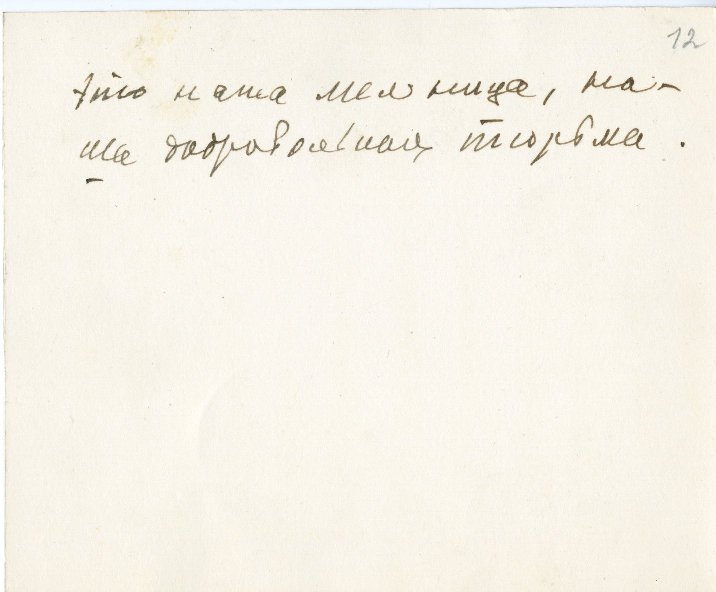 12
это наша мельница, на-
ша добровольная тюрьма.